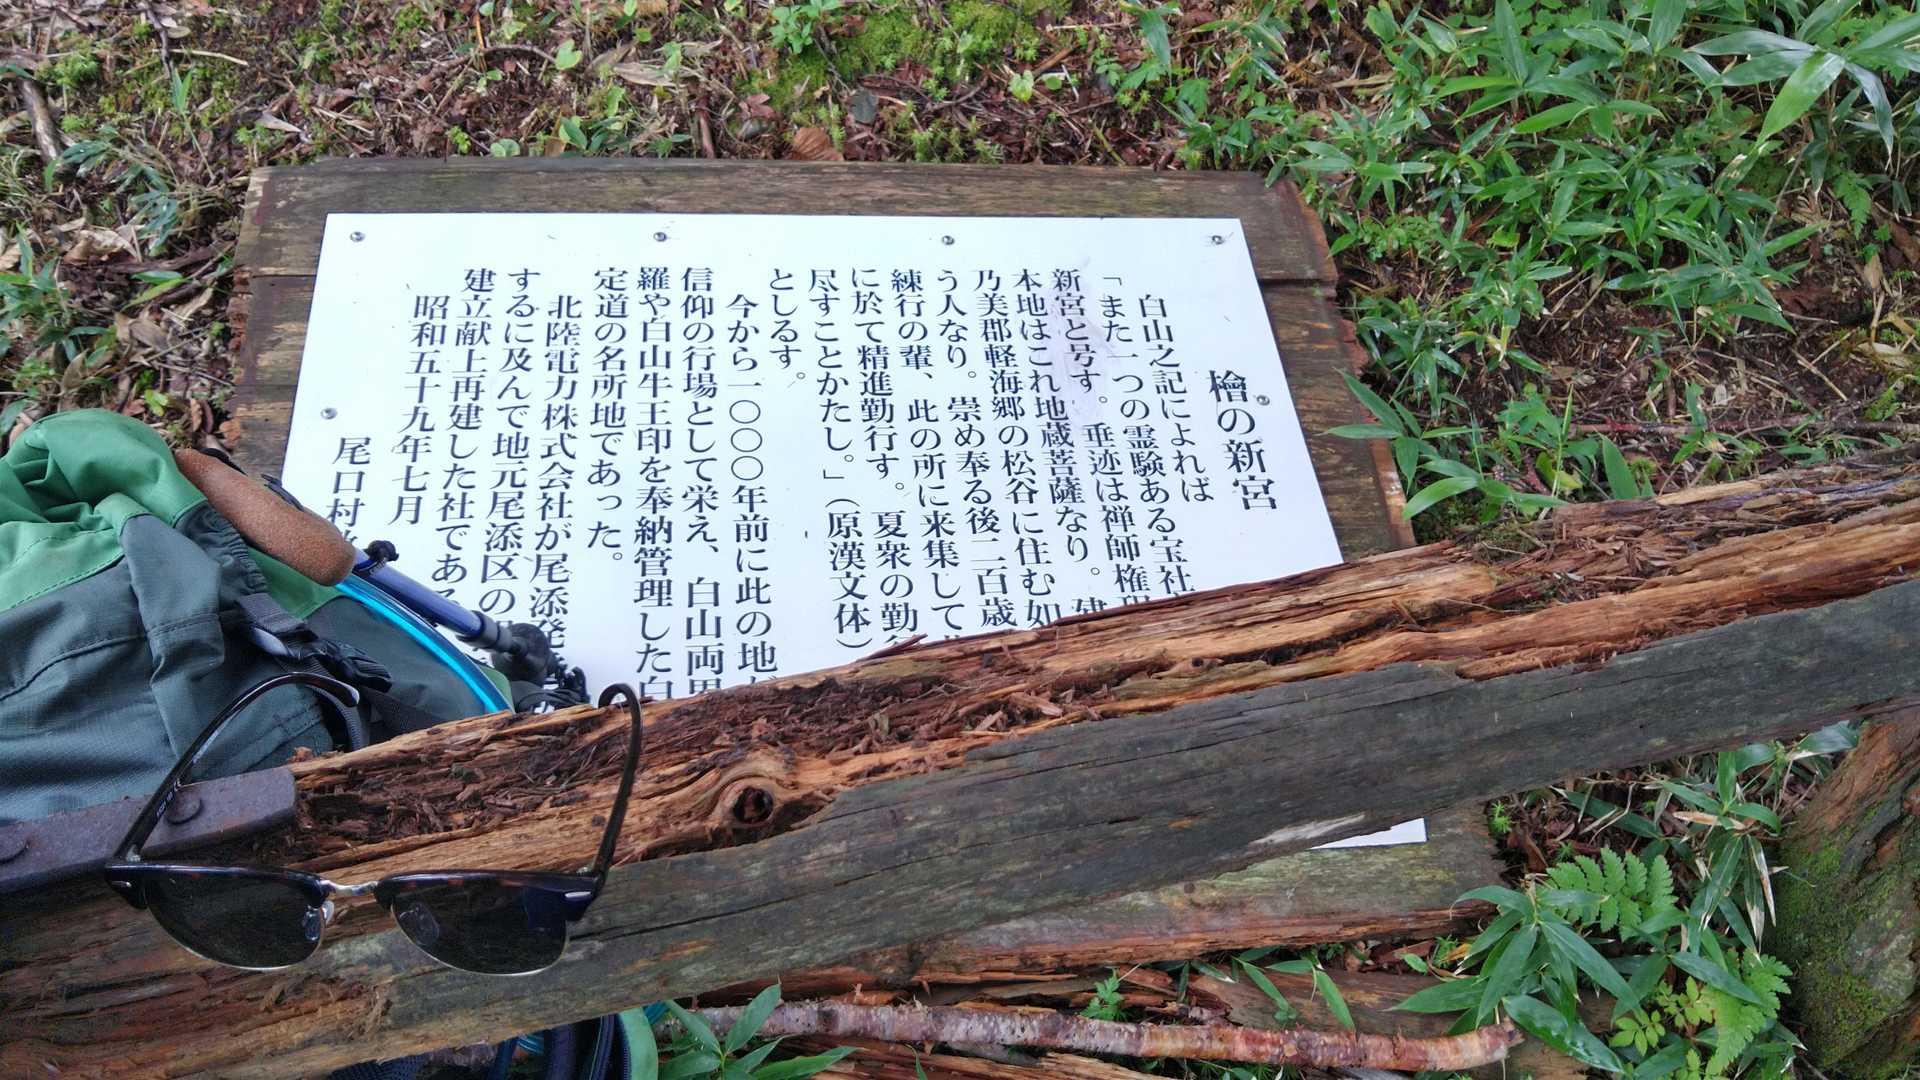 檜の新宮
白山之記によれば
「また一つの霊験ある宝社
新宮と号す。垂迹は禅師権
本地はこれ地蔵菩薩なり。建
乃美郡軽海郷の松谷に住む如
う人なり。崇め奉る後二百歳
練行の輩、此の所に来集して
に於て精進勤行す。夏衆の勤
尽すことかたし。」（原漢文体）
としるす。
今から一〇〇〇年前に此の地が
信仰の行場として栄え、白山両界
羅や白山牛王印を奉納管理した白
定道の名所地であった。
北陸電力株式会社が尾添発
するに及んで地元尾添区の
建立献上再建した社である
昭和五十九年七月
尾口村